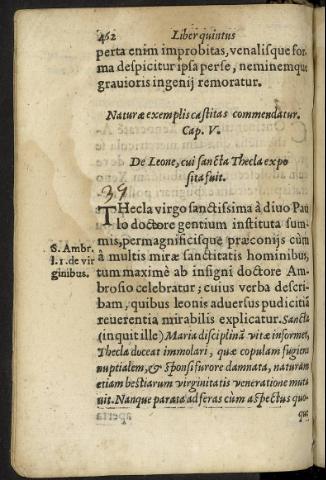 462 Liber quintus
perta enim improbitas, venalisque for
ma despicitur ipsa per se, neminemque
grauioris ingenij remoratur.
Naturæ exemplis castitas commendatur.
Cap. V.
De Leone, cui sancta Thecla expo
sita fuit.
39
THecla virgo sanctissima à diuo Pau
lo doctore gentium instituta sum
mis, permagnificisque præconijs cùm
à multis miræ sanctitatis hominibus,
tum maximè ab insigni doctore Am
brosio celebratur; cuius verba descri
bam, quibus leonis aduersus pudicitiã
reuerentia mirabilis explicatur. Sancta
(inquit ille) Maria disciplinã vitæ informet,
Thecla doceat immolari, quæ copulam fugiens
nuptialem, & sponsi furore damnata, naturam
etiam bestiarum virginitatis veneratione muta
uit. Nanque parata ad feras cùm aspectus quo-
que
S. Ambr.
l. 1. de vir
ginibus.